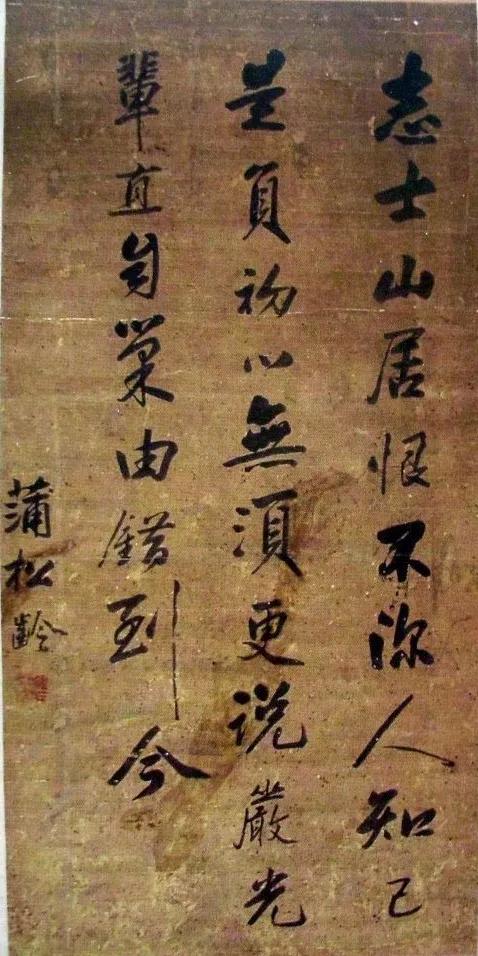 志士山居恨不深人知已
是負初心無須更說嚴光
輩直自巢由錯到今
蒲松齡